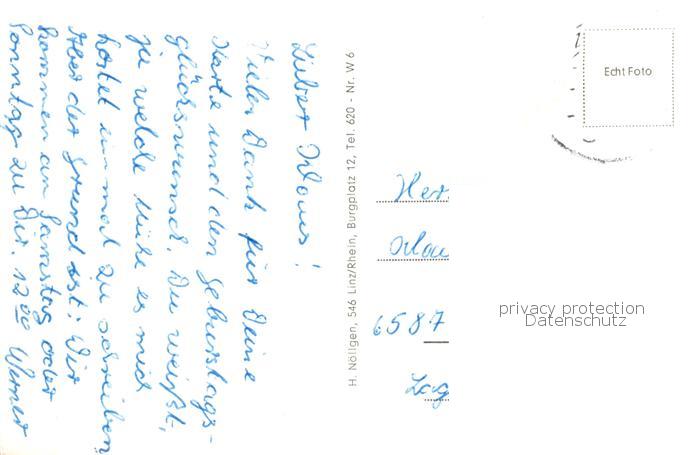 Lieber Klaus!
Vielen Dank für Deine
Karte und den Geburtstags-
glückwunsch. Du weißt,
je welche Mühe es mich
kostet einmal zu schreiben
Aber der Grund ist: Wir
kommen am Samstag oder
Sonntag zu Dir. 12 00 Werner
H. Nöllgen, 546 Linz/Rhein, Burgplatz 12, Tel. 620 - Nr. W 6
Echt Foto
Her
Klau
6587
privacy protection
Datenschutz